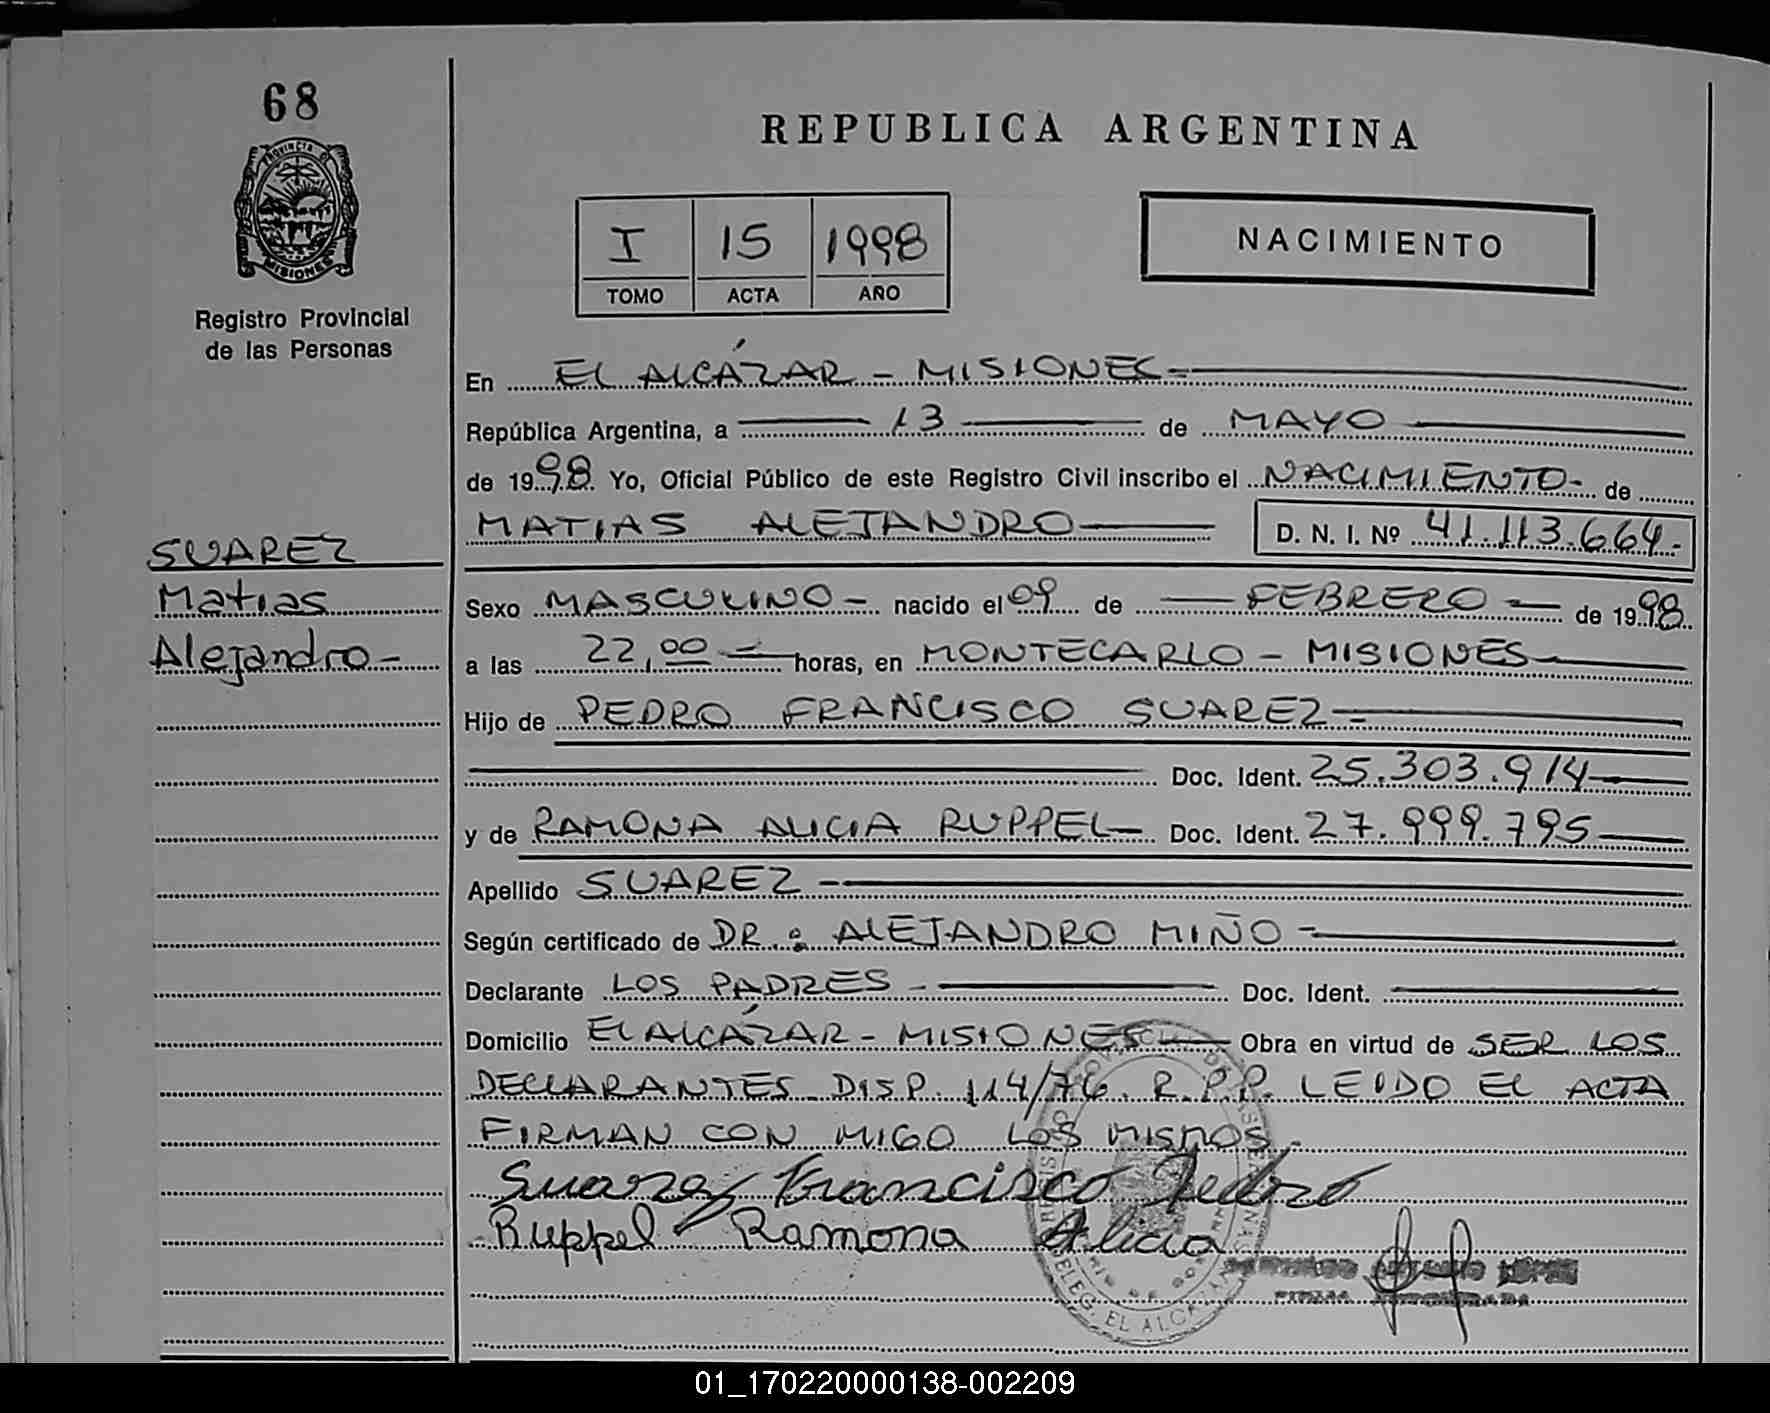 68
PROVINCIA D
MISIONES
Registro Provincial
de las Personas
SUAREZ
Matias
Alejandro-
REPUBLICA ARGENTINA
I 15 1998
TOMO ACTA AÑO
NACIMIENTO
En EL ALCÁZAR - MISIONES-
República Argentina, a 13 de MAYO
de 1998. Yo, Oficial Público de este Registro Civil inscribo el NACIMIENTO- de
MATIAS ALEJANDRO D. N. I. Nº 41.113.664.-
Sexo MASCULINO - nacido el 09 de FEBRERO - de 1998.
a las 22,00 horas, en MONTECARLO - MISIONES
Hijo de PEDRO FRANCISCO SUAREZ-
Doc. Ident. 25.303.914
y de RAMONA ALICIA RUPPEL- Doc. Ident. 27.999.795
Apellido SUAREZ -
Según certificado de DR.: ALEJANDRO MIÑO -
Declarante LOS PADRES - Doc. Ident.
Domicilio EL ALCÁZAR - MISIONES Obra en virtud de SER LOS
DECLARANTES DISP. 114/76. R.P.P. LEIDO EL ACTA
FIRMAN CON MIGO LOS MISMOS.-
Suarez Francisco Pedro
Ruppel Ramona Alicia
DELEG. EL ALCAZAR
01_170220000138-002209